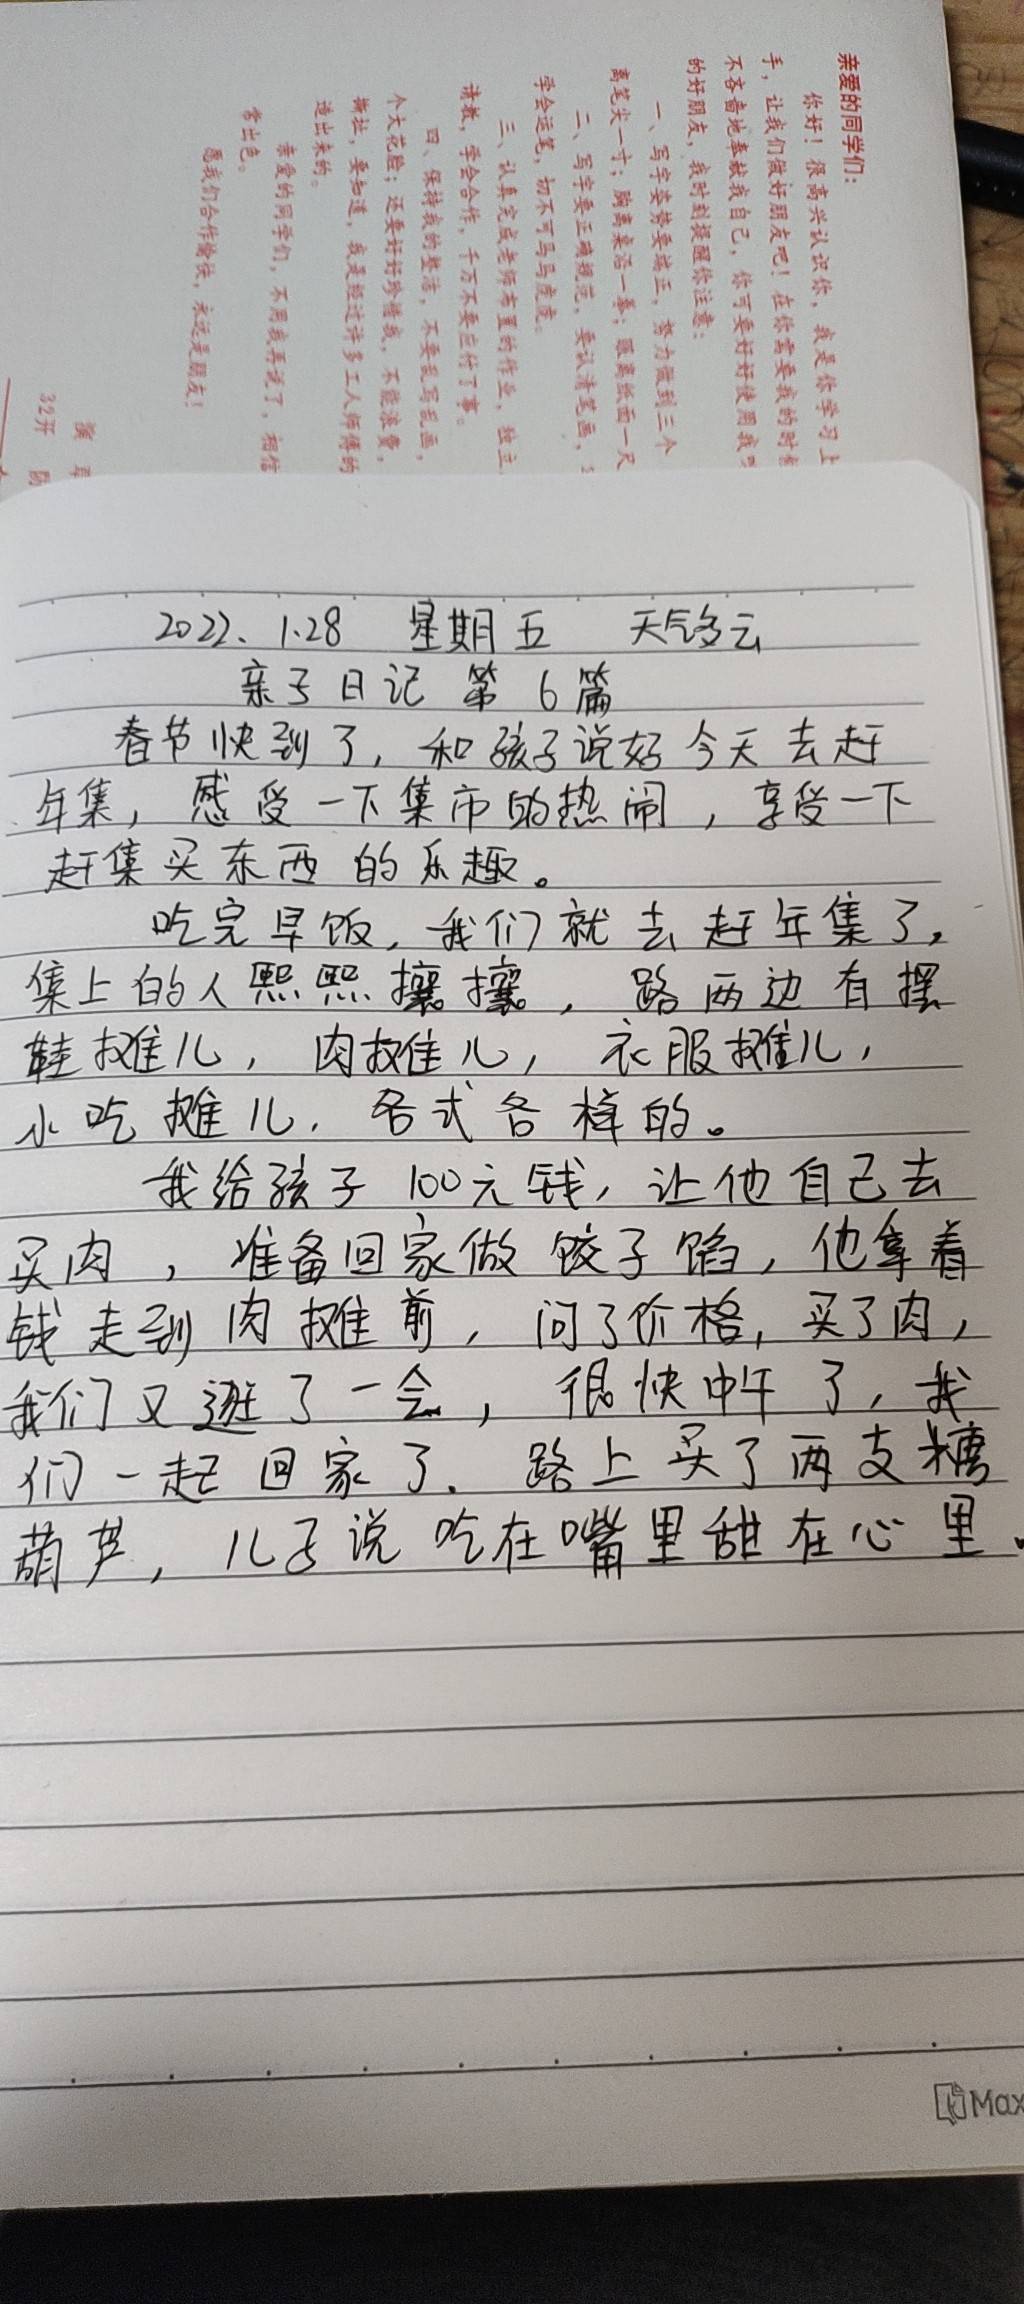 亲爱的同学们：
你好！很高兴认识你，我是你学习上
手，让我们做好朋友吧！在你需要我的时
不吝啬地奉献我自己，你可要好好使用我
的好朋友，我时刻提醒你注意：
一、写字姿势要端正，努力做到三个
离笔尖一寸；胸离桌沿一拳；眼离纸面一尺
二、写字要正确规范，要认清笔画，
学会运笔，切不可马马虎虎。
三、认真完成老师布置的作业，独立
请教，学会合作，千万不要应付了事。
四、保持我的整洁，不要乱写乱画，
个大花脸；还要好好珍惜我，不能浪费，
撕扯，要知道，我是经过许多工人师傅的
造出来的。
亲爱的同学们，不用我再说了，相信
常出色。
愿我们合作愉快，永远是朋友！
32开
2022、1.28 星期五 天气多云
亲子日记 第6篇
春节快到了，和孩子说好今天去赶
年集，感受一下集市的热闹，享受一下
赶集买东西的乐趣。
吃完早饭，我们就去赶年集了，
集上的人熙熙攘攘，路两边有摆
鞋摊儿，肉摊儿，衣服摊儿，
小吃摊儿．各式各样的。
我给孩子100元钱，让他自己去
买肉，准备回家做饺子馅，他拿着
钱走到肉摊前，问了价格，买了肉，
我们又逛了一会，很快中午了，我
们一起回家了．路上买了两支糖
葫芦，儿子说吃在嘴里甜在心里。
Max